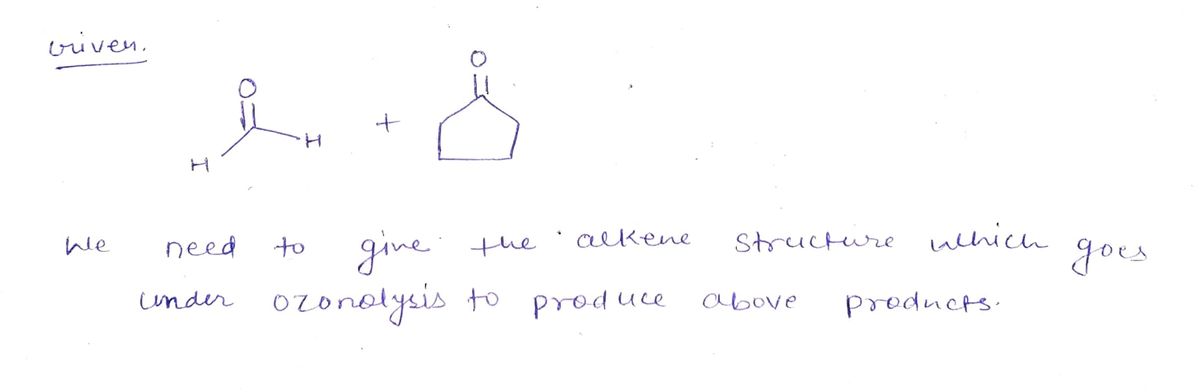 Given.
O O
H H +
We need to give the alkene structure which goes
under ozonolysis to produce above products.